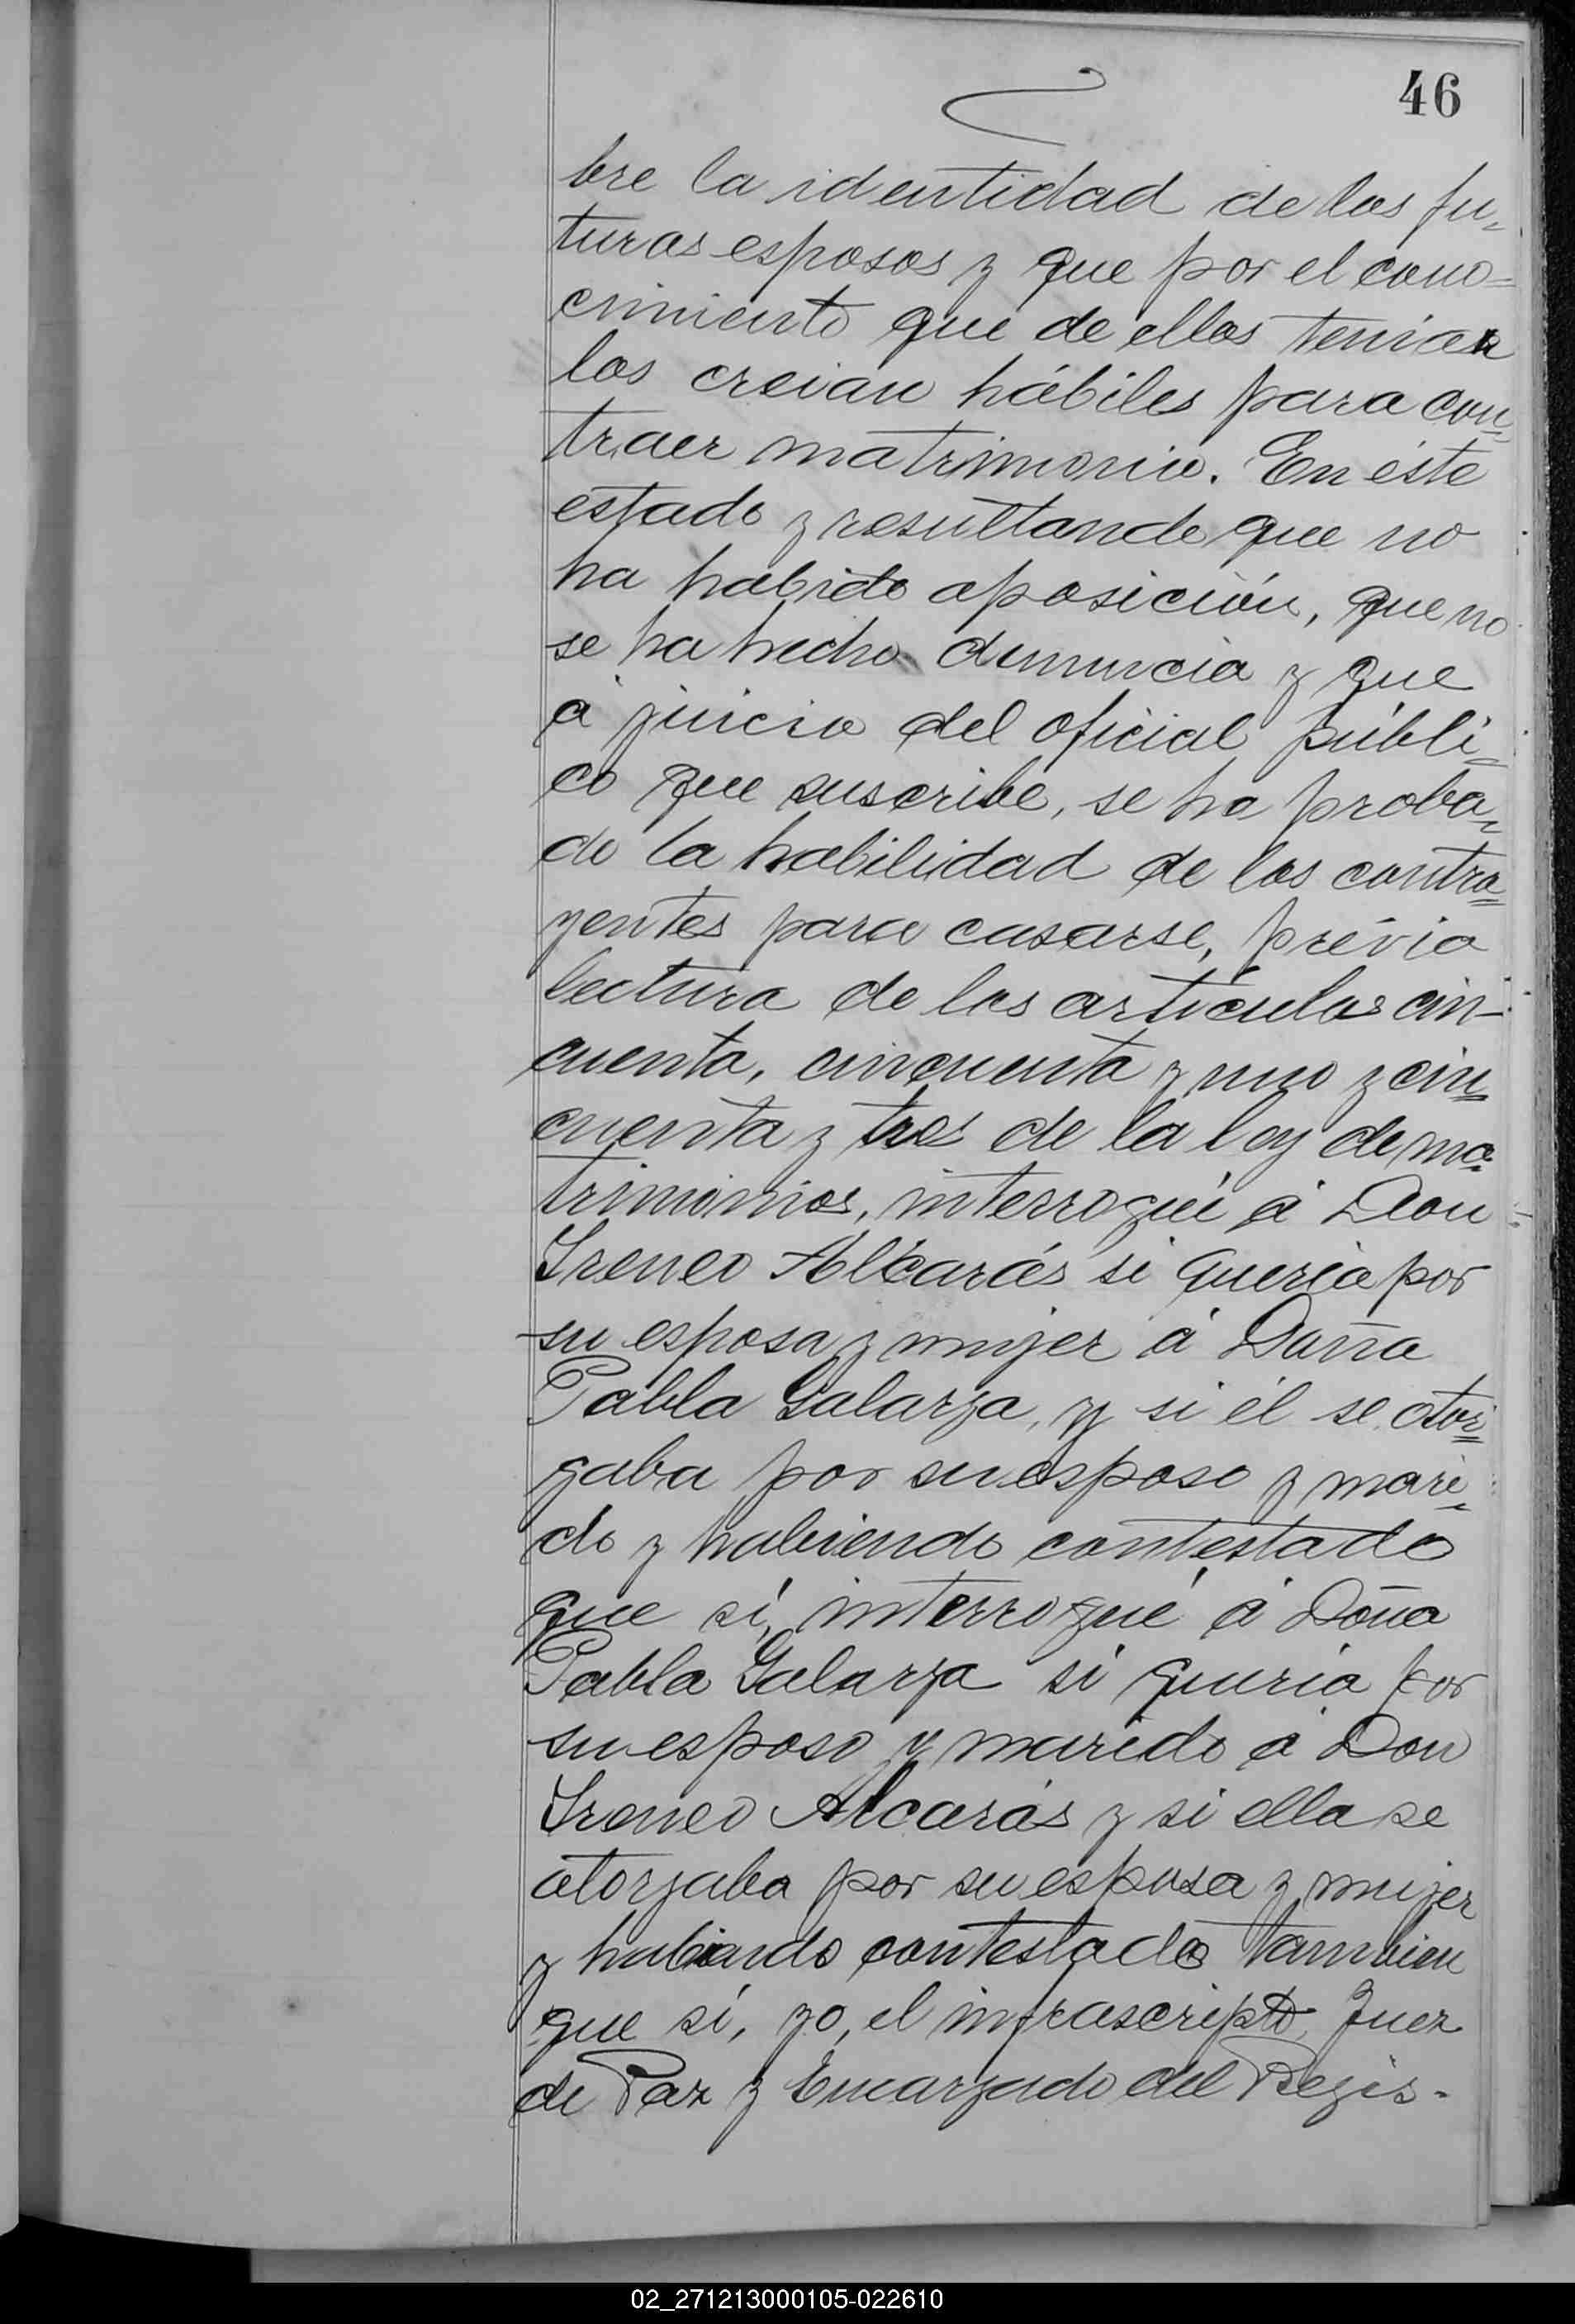 46
bre la identidad de los fu-
turos esposos y que por el cono=
cimiento que de ellos tenian
los creian hábiles para con=
traer matrimonio. En éste
estado y resultando que no
ha habido oposición, que no
se ha hecho denuncia y que
á juicio del oficial públi=
co que suscribe, se ha proba=
do la habilidad de los contra=
yentes para casarse, prévia
lectura de los artículos cin-
cuenta, cincuenta y uno y cin=
cuenta y tres de la ley de ma=
trimonios, interrogué á Don
Ireneo Alcarás si queria por
su esposa y mujer á Doña
Pabla Galarza, y si él se otor=
gaba por su esposo y mari=
do y habiendo contestado
que sí, interrogué á Doña
Pabla Galarza si queria por
su esposo y marido á Don
Ireneo Alcarás y si ella se
otorgaba por su esposa y mujer
y habiendo contestado tambien
que sí, yo, el infrascripto Juez
de Paz y Encargado del Regis-
02_271213000105-022610